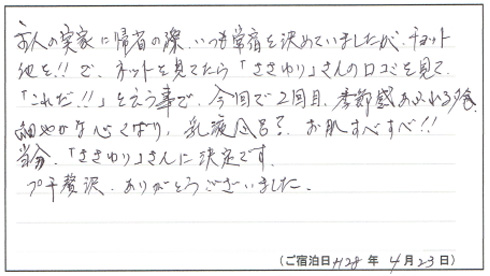 主人の実家に帰省の際、いつも常宿を決めていましたが、チョット
他を!!で、ネットを見てたら「ささゆり」さんの口コミを見て
「これだ!!」と云う事で、今回で2回目、季節感あふれる夕食
細やかな心くばり、乳液風呂?、お肌すべすべ!!
当分、「ささゆり」さんに決定です。
プチ贅沢、ありがとうございました。
(ご宿泊日 H28 年 4月23日)